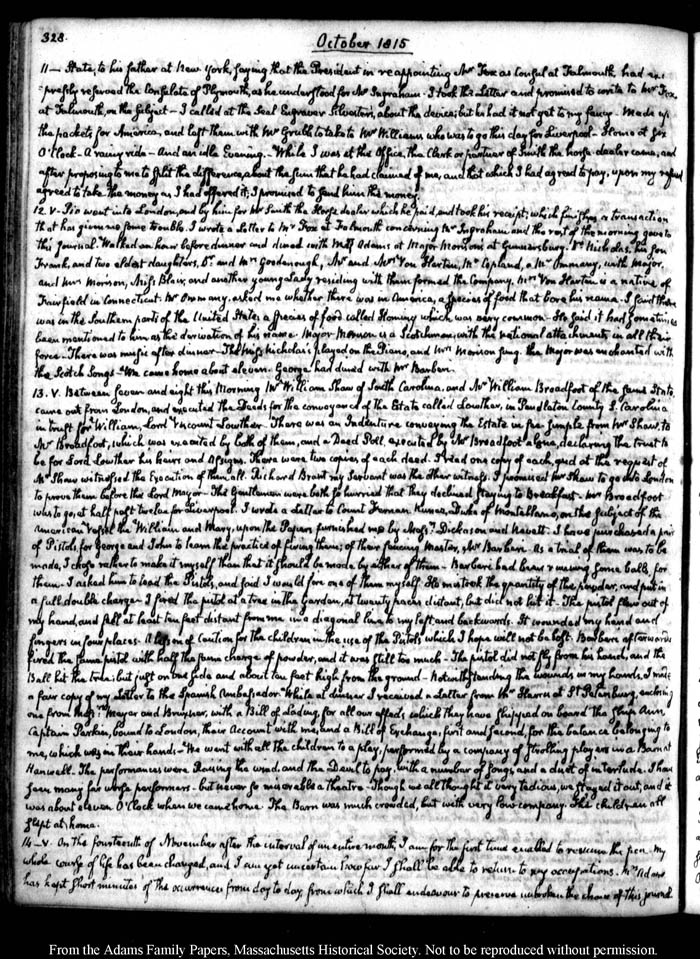 328.
October 1815
11 — State, to his father at New York, saying that the President in reappointing Mr Fox as Consul at Falmouth had ex-
pressly reserved the Consulate of Plymouth, as he understood for Mr Ingraham. I took the Letter and promised to write to Mr Fox
at Falmouth, on the subject — I called at the Seal Engraver Silvester's, about the device; but he had it not yet to my fancy. Made up
the packets for America, and left them with Mr Grubb to take to Mr Williams who was to go this day for Liverpool. Home at six
O'Clock — A rainy ride — And an idle Evening. While I was at the Office, the Clerk or partner of Smith the horse-dealer came, and
after proposing to me to split the difference, about the sum that he had claimed of me, and that which I had agreed to pay, upon my refusal
agreed to take the money as I had offered it; I promised to send him the money.
12. V. Pio went into London, and by him for Mr Smith the Horse dealer which he paid, and took his receipt; which finishes a transaction
that has given me some trouble. I wrote a Letter to Mr Fox at Falmouth concerning Mr Ingraham and the rest of the morning gave to
this Journal. Walked an hour before dinner and dined with Mrs Adams at Major Morison's at Gunnersbury. Dr Nicholas, his Son
Frank, and two eldest daughters, Dr and Mrs Goodenough, Mr and Mrs Von Harten, Mr Copland, a Mr Ommany, with Major,
and Mrs Morison, Miss Blair, and another young Lady residing with them formed the Company. Mrs Von Harten is a native of
Fairfield in Connecticut. Mr Ommany, asked me whether there was in America, a species of food that bore his name. I said there
was in the Southern parts of the United States a species of food called Hominy which was very common — He said it had sometimes
been mentioned to him as the derivation of his name. Major Morison is a Scotchman, with the national attachments in all their
force — There was music after dinner — The Miss Nicholas's played on the Piano, and Mrs Morison sung. The Major was enchanted with
the Scotch Songs — We came home about eleven. George had dined with Mr Barberi.
13. V. Between seven and eight this Morning Mr William Shaw of South Carolina, and Mr William Broadfoot of the same State,
came out from London, and executed the Deeds for the conveyance of the Estate called Lowther, in Pendleton County S. Carolina
in trust for William, Lord Viscount Lowther. There was an Indenture conveying the Estate in fee simple from Mr Shaw, to
Mr Broadfoot, which was executed by both of them, and a Deed Poll, executed by Mr Broadfoot alone, declaring the trust to
be for Lord Lowther his heirs and Assigns. There were two copies of each deed. I read one copy of each, and at the request of
Mr Shaw witnessed the Execution of them all. Richard Brant my Servant was the other witness. I promised Mr Shaw to go into London
to prove them before the Lord Mayor — The Gentlemen were both so hurried that they declined staying to Breakfast. Mr Broadfoot
was to go, at half past twelve for Liverpool. I wrote a Letter to Count Fernan Nunez, Duke of Montellano, on the subject of the
American vessel the William and Mary, upon the Papers furnished me by Messrs Dickason and Nevett. I have purchased a pair
of Pistols, for George and John to learn the practice of firing them; of their fencing Master, Mr Barberi. As a trial of them was to be
made, I chose rather to make it myself than that it should be made by either of them — Barberi had been running some balls, for
them. I asked him to load the Pistols, and said I would fire one of them myself. He mistook the quantity of the powder, and put in
a full double charge — I fired the pistol at a tree in the Garden, at twenty paces distant, but did not hit it. The pistol flew out of
my hand, and fell at least ten feet distant from me in a diagonal line to my left and backwards. It wounded my hand and
fingers in four places. A lesson of caution for the children in the use of the Pistols which I hope will not be lost. Barberi afterwards
fired the same pistol with half the same charge of powder, and it was still too much — The pistol did not fly from his hand, and the
Ball hit the tree; but just on one side and about ten feet high from the ground — Notwithstanding the wounds in my hands, I made
a fair copy of my Letter to the Spanish Ambassador. While at dinner I received a Letter from Mr Harris at St Petersburg, enclosing
one from Messrs Meyer and Bruxner, with a Bill of Lading, for all our effects which they have shipped on board the Ship Ann,
Captain Parker, bound to London, their Account with me, and a Bill of Exchange, first and second, for the balance belonging to
me, which was in their hands — We went with all the children to a play, performed by a company of strolling players in a Barn at
Hanwell. The performances were Raising the wind, and the Devil to pay, with a number of songs, and a duet of interlude. I have
seen many far worse performers — but never so miserable a theatre. Though we all thought it very tedious, we stayed it out, and it
was about eleven O'Clock when we came home. The Barn was much crowded, but with very low company. The children all
slept at home.
14 — V. On the fourteenth of November after the interval of an entire month, I am for the first time enabled to resume the pen. My
whole course of life has been changed, and I am yet uncertain how far I shall be able to return to my occupations. Mrs Adams
has kept short minutes of the occurrences from day to day, from which I shall endeavour to preserve unbroken the chain of this journal
From the Adams Family Papers, Massachusetts Historical Society. Not to be reproduced without permission.